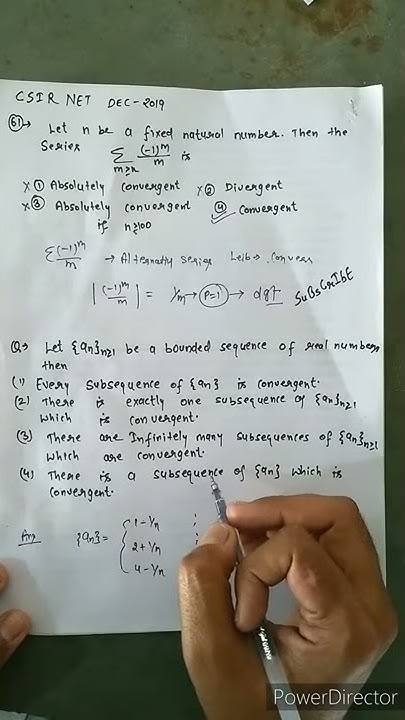 CSIR NET DEC-2019
61→ Let n be a fixed natural number. Then the
Series ∑_{m≥n} (-1)^m/m is
× ① Absolutely convergent × ② Divergent
× ③ Absolutely convergent ④ Convergent
if n≥100
∑ (-1)^m/m → Alternaty series Leib→
|(-1)^m/m| = 1/m → P=1 → dgt SuBsCrIbE
Q→ Let {an}n≥1 be a bounded sequence of real numbers
then
(1) Every subsequence of {an} is convergent.
(2) There is exactly one subsequence of {an}n≥1
which is convergent.
(3) There are Infinitely many subsequences of {an}n≥1
which are convergent.
(4) There is a subsequence of {an} which is
convergent.
Ans {an} = { 1-1/n ;
2+1/n ;
4-1/n
PowerDirector